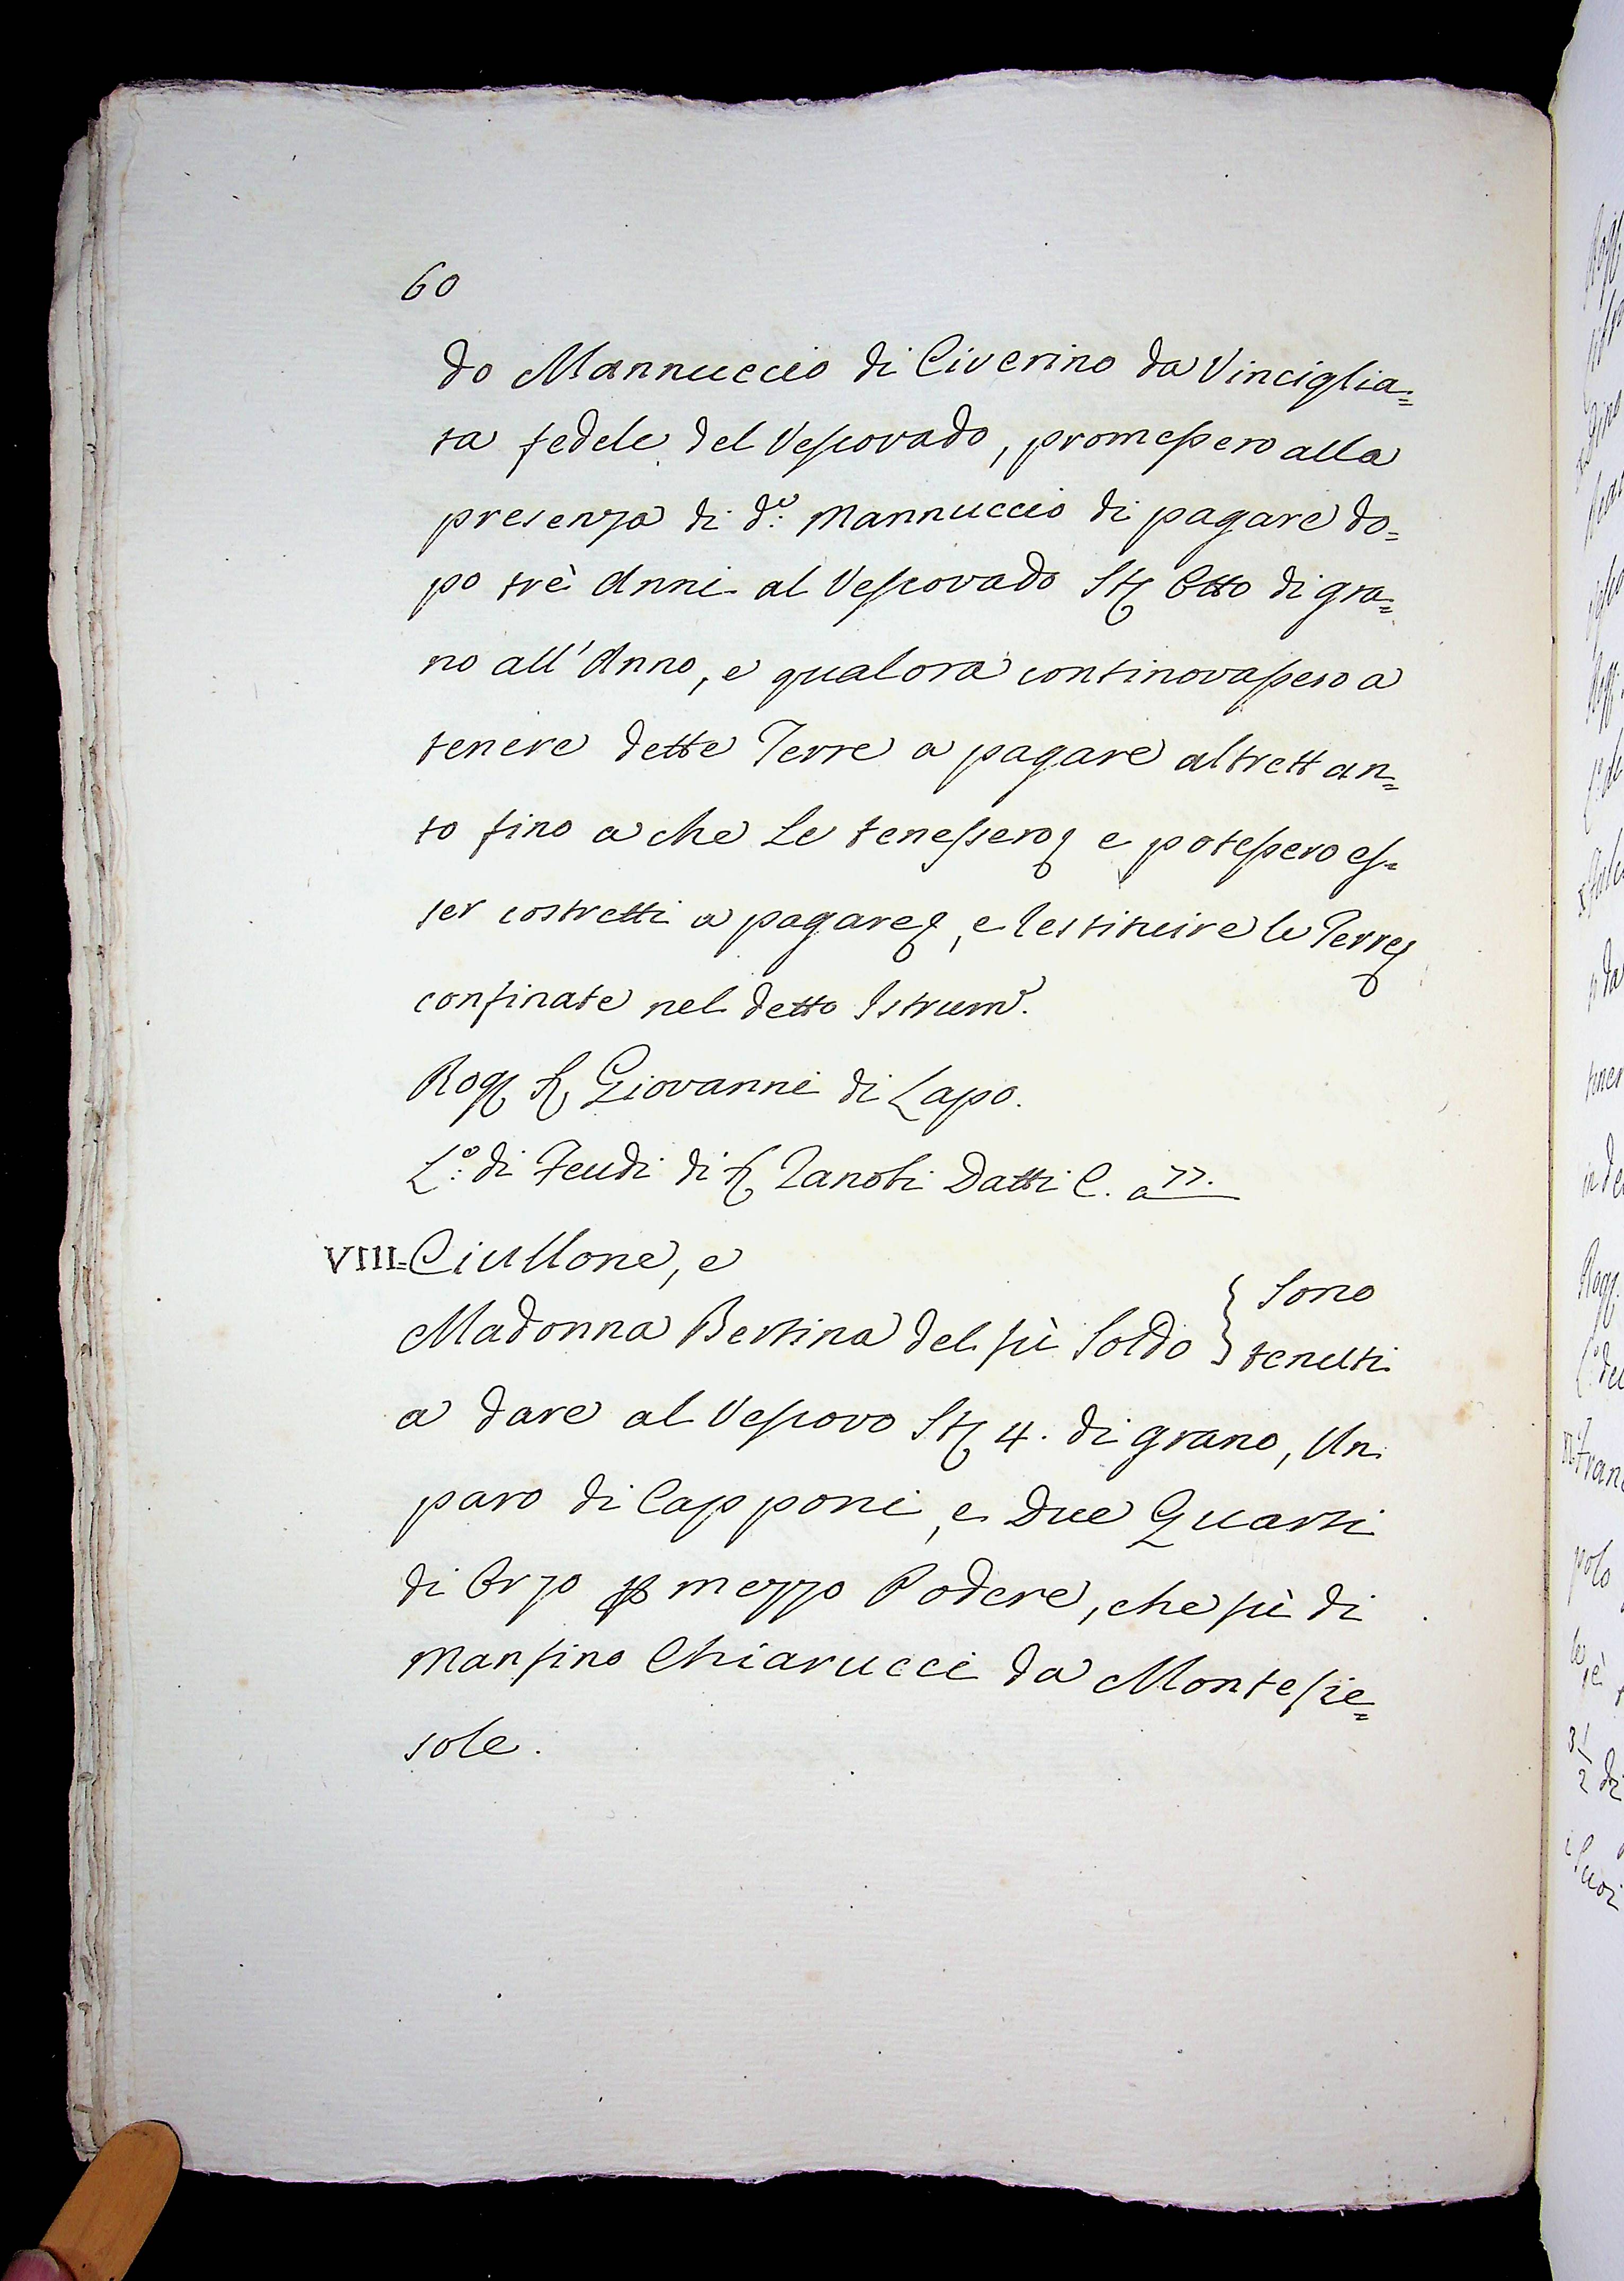 60
do Mannuccio di Civerino da Vinciglia=
ta fedele del Vescovado, promessero alla
presenza di d.º Mannuccio di pagare do=
po trè Anni al Vescovado St Otto di gra=
no all'Anno, e qualora continovassero a
tenere dette Terre a pagare altrettan=
to fino a che Le tenessero, e potessero es=
ser costretti a pagare, e restituire le Terre
confinate nel detto Istrum.º
Rog S Giovanni di Lapo.
L.º di Feudi di S Zanobi Datti C. a 77.
VIII= Ciullone, e
Madonna Bertina del fù Soldo } Sono
tenuti
a dare al Vescovo St 4. di grano, Un
paro di Capponi, e Due Quarti
di Orzo p mezzo Podere, che fù di
Manfino Chiarucci da Montefie=
sole.